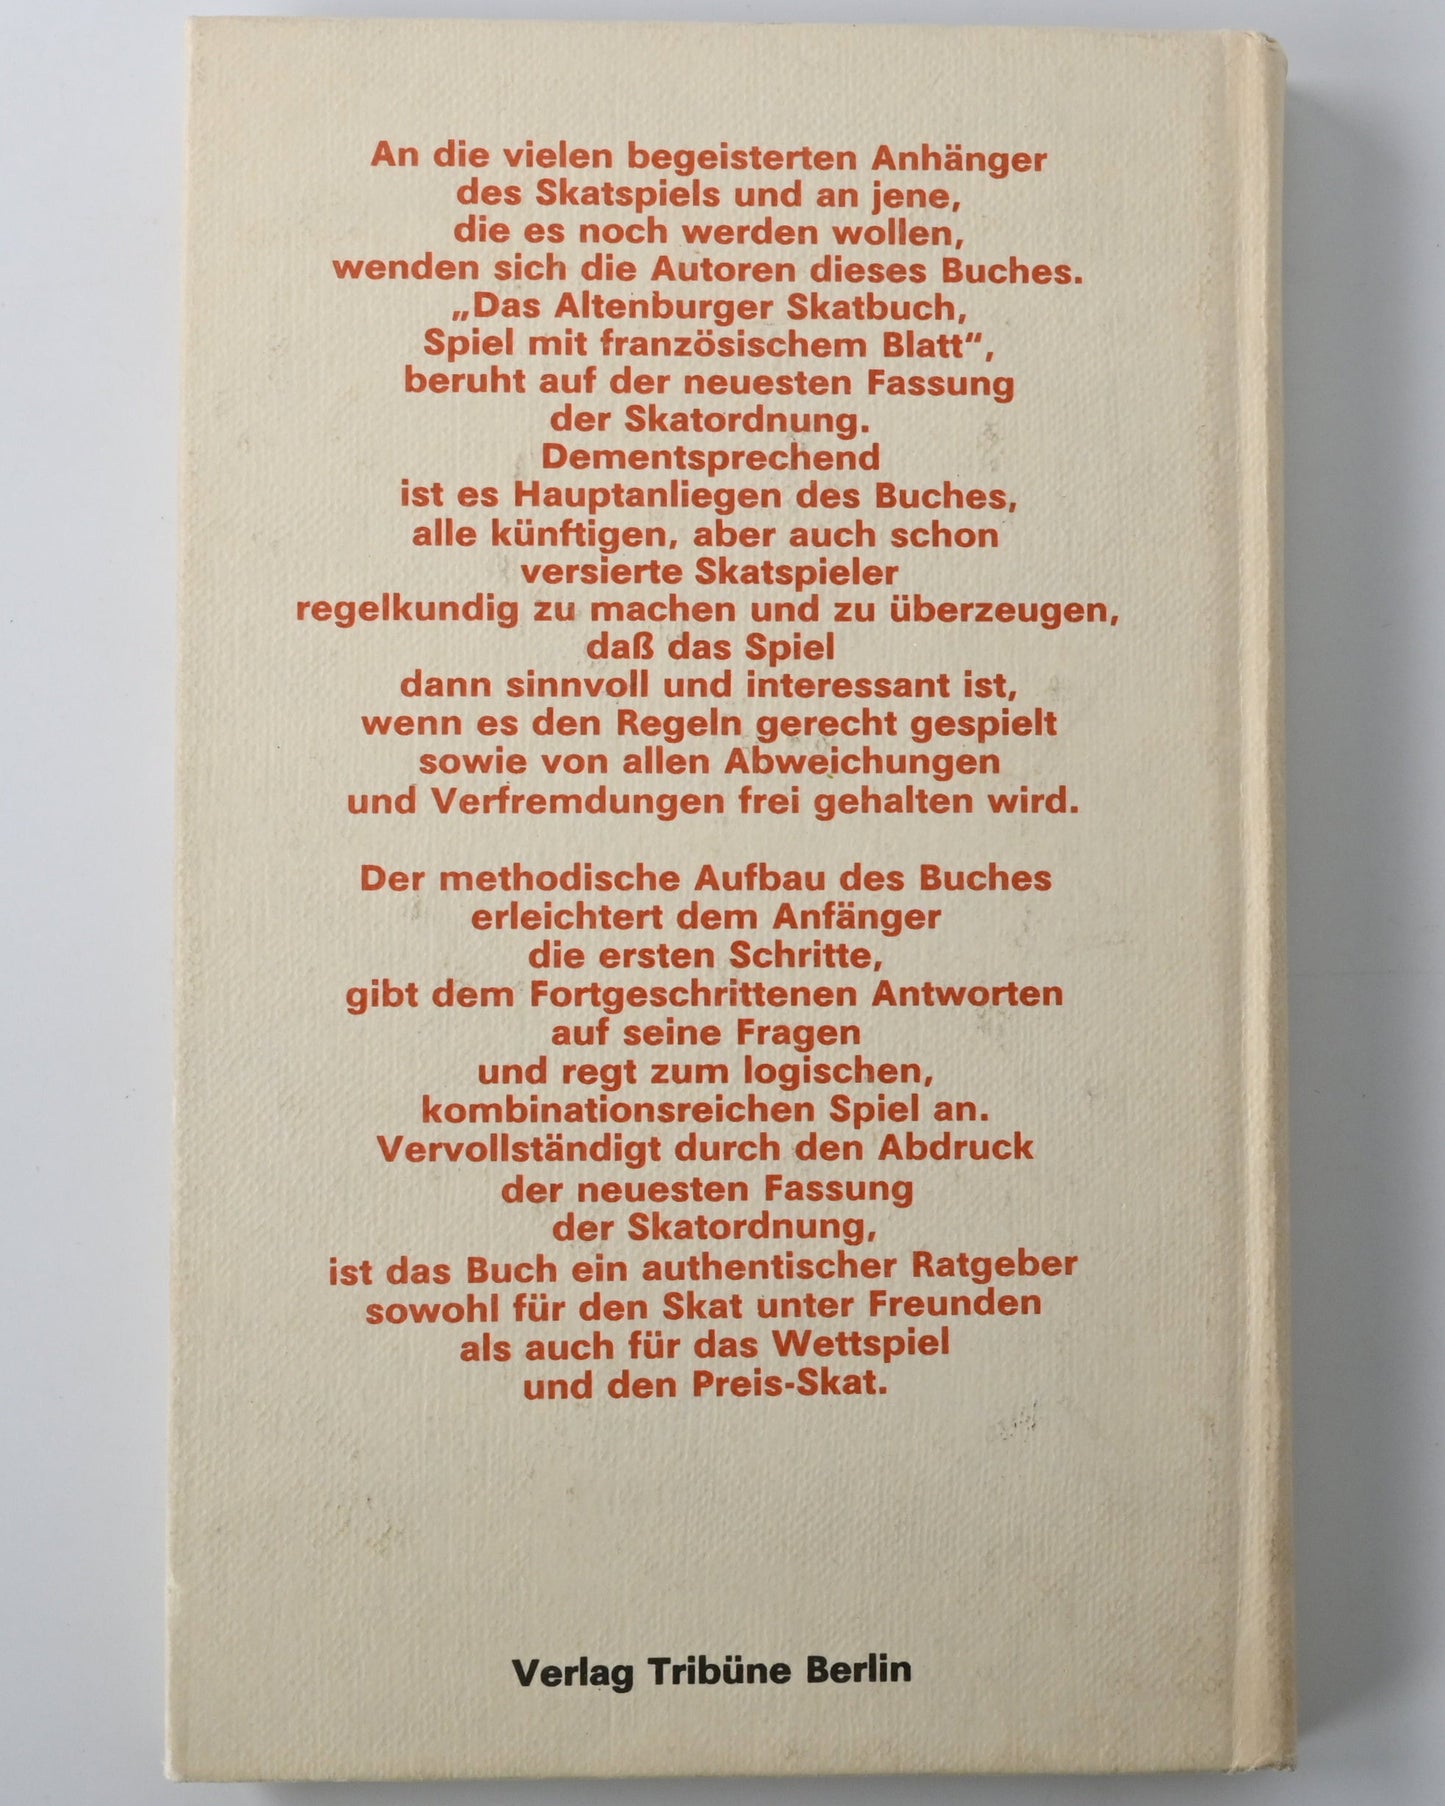 An die vielen begeisterten Anhänger
des Skatspiels und an jene,
die es noch werden wollen,
wenden sich die Autoren dieses Buches.
„Das Altenburger Skatbuch,
Spiel mit französischem Blatt“,
beruht auf der neuesten Fassung
der Skatordnung.
Dementsprechend
ist es Hauptanliegen des Buches,
alle künftigen, aber auch schon
versierte Skatspieler
regelkundig zu machen und zu überzeugen,
daß das Spiel
dann sinnvoll und interessant ist,
wenn es den Regeln gerecht gespielt
sowie von allen Abweichungen
und Verfremdungen frei gehalten wird.
Der methodische Aufbau des Buches
erleichtert dem Anfänger
die ersten Schritte,
gibt dem Fortgeschrittenen Antworten
auf seine Fragen
und regt zum logischen,
kombinationsreichen Spiel an.
Vervollständigt durch den Abdruck
der neuesten Fassung
der Skatordnung,
ist das Buch ein authentischer Ratgeber
sowohl für den Skat unter Freunden
als auch für das Wettspiel
und den Preis-Skat.
Verlag Tribüne Berlin